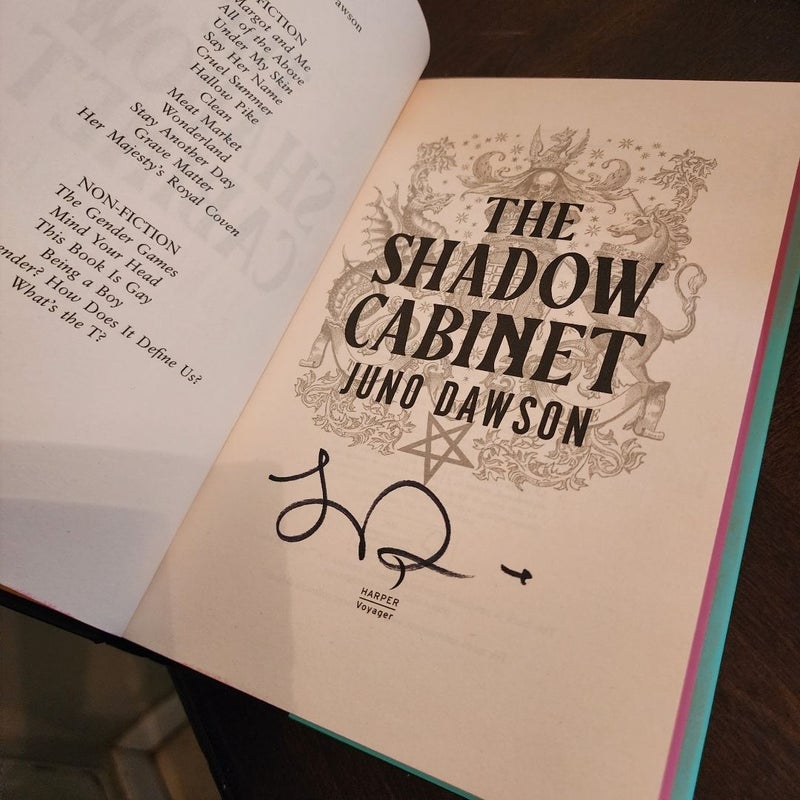 awson
FICTION
Margot and Me
All of the Above
Under My Skin
Say Her Name
Cruel Summer
Hallow Pike
Clean
Meat Market
Wonderland
Stay Another Day
Grave Matter
Her Majesty's Royal Coven
NON-FICTION
The Gender Games
Mind Your Head
This Book Is Gay
Being a Boy
ender? How Does It Define Us?
What's the T?
THE
SHADOW
CABINET
JUNO DAWSON
HARPER
Voyager